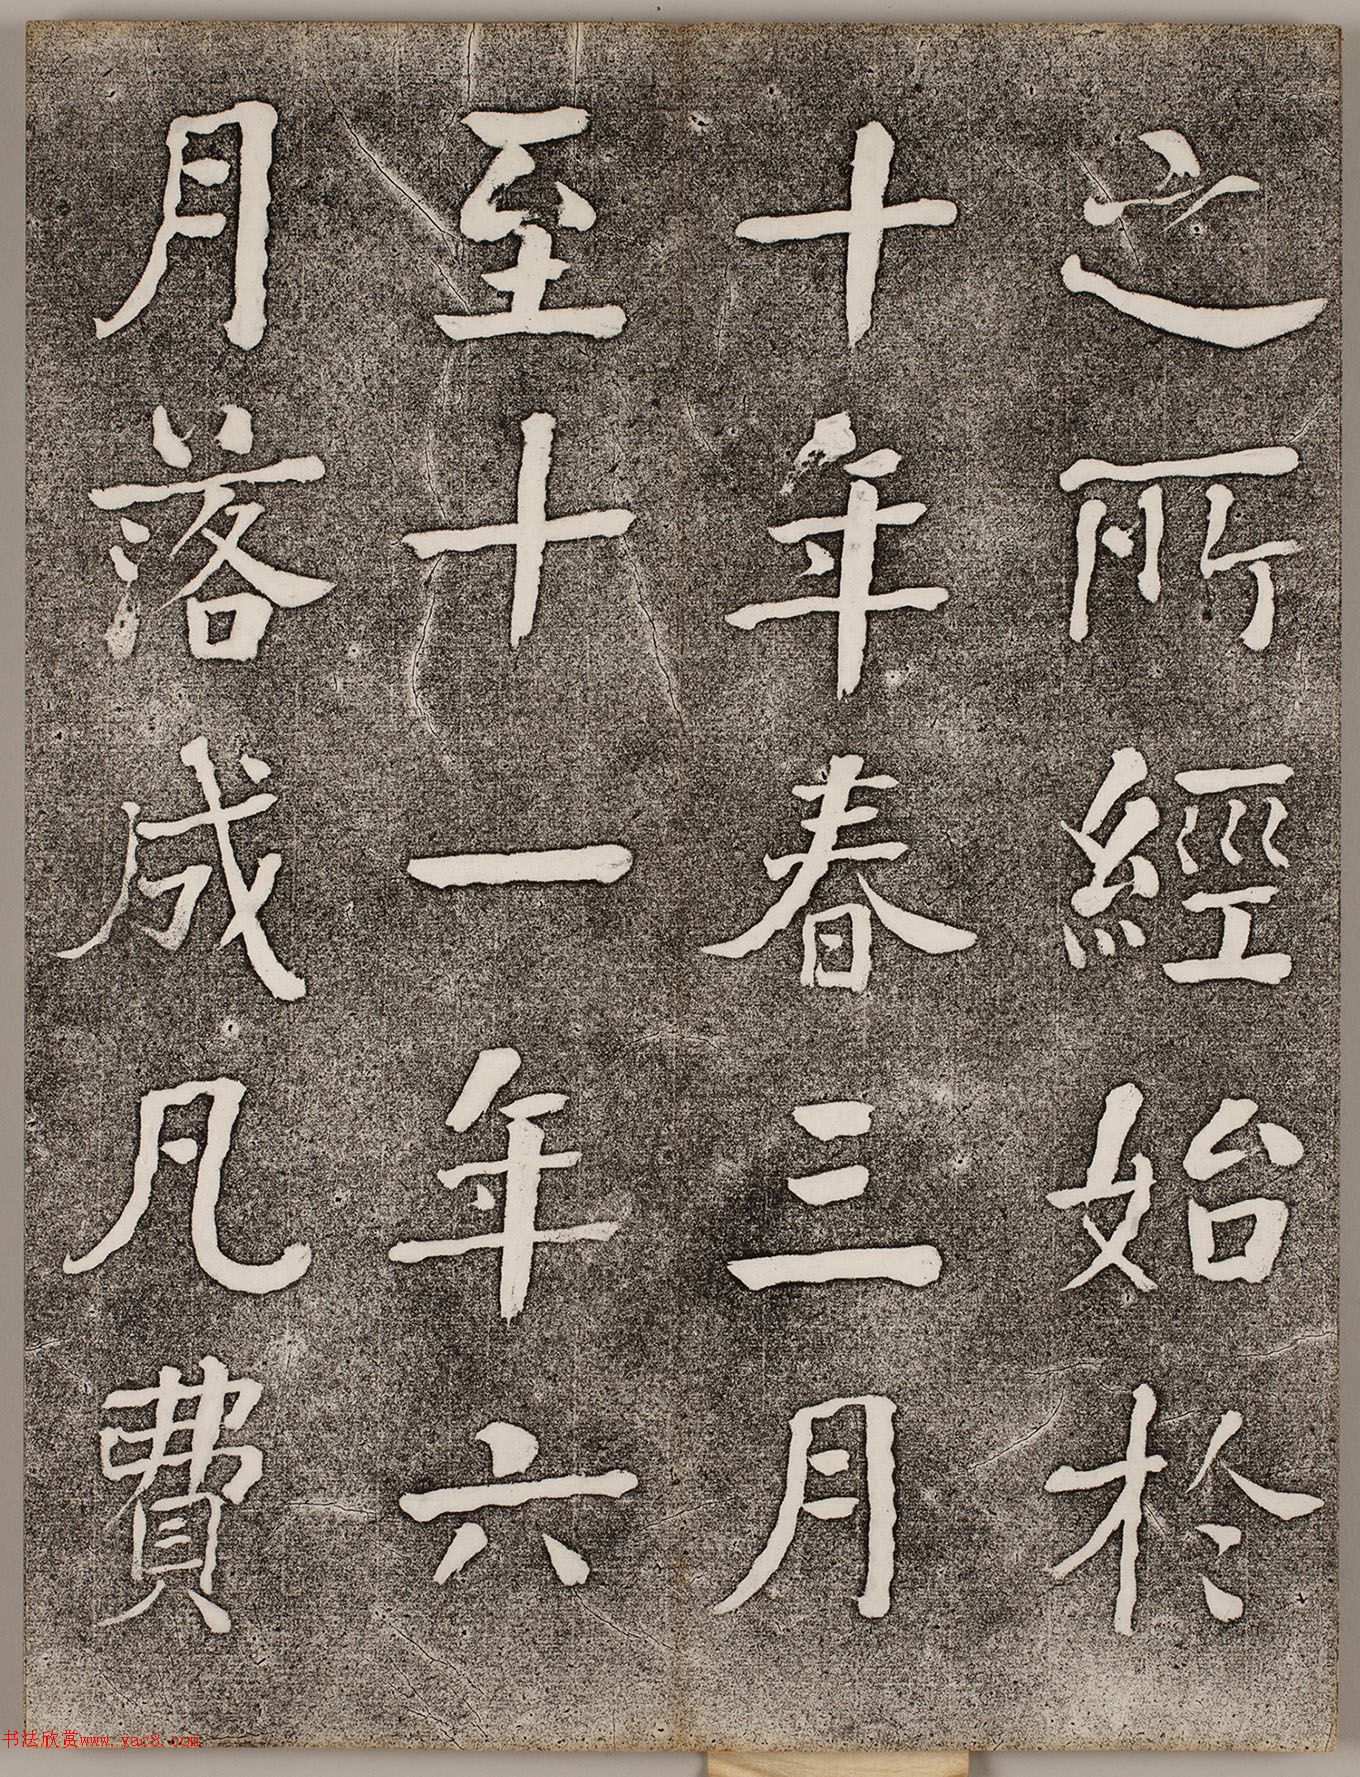 之所經始於
十年春三月
至十一年六
月落成凡費
书法欣赏www.yac8.com